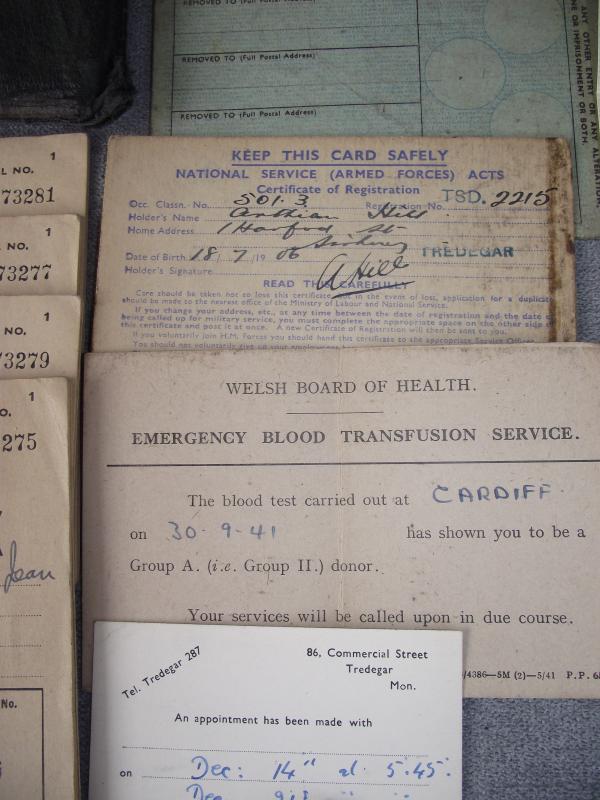 REMOVED TO (Full Postal Address)
REMOVED TO (Full Postal Address)
REMOVED TO (Full Postal Address)
ANY OTHER ENTRY OR ANY ALTERATION,
NE OR IMPRISONMENT OR BOTH.
L NO. 1
73281
NO. 1
73277
NO. 1
73279
O. 1
275
Jean
No.
KEEP THIS CARD SAFELY
NATIONAL SERVICE (ARMED FORCES) ACTS
Certificate of Registration
Occ. Classn. No. 501.3 Registration No. TSD. 2215
Holder's Name Hill
Home Address 1 St
Sirhowy TREDEGAR
Date of Birth 18/7/1906
Holder's Signature A Hill
READ THIS CAREFULLY
Care should be taken not to lose this certificate. In the event of loss, application for a duplicate
should be made to the nearest office of the Ministry of Labour and National Service.
If you change your address, etc., at any time between the date of registration and the date of
being called up for military service, you must complete the appropriate space on the other side of
this certificate and post it at once. A new Certificate of Registration will then be sent to you.
If you voluntarily join H.M. Forces you should hand this certificate to the appropriate Service Officer.
You should not voluntarily give up your employment
WELSH BOARD OF HEALTH.
EMERGENCY BLOOD TRANSFUSION SERVICE.
The blood test carried out at CARDIFF.
on 30-9-41 has shown you to be a
Group A. (i.e. Group II.) donor.
Your services will be called upon in due course.
/4386—5M (2)—5/41 P.P. 6
Tel. Tredegar 287
86, Commercial Street
Tredegar
Mon.
An appointment has been made with
on Dec: 14" at 5.45.
Dec